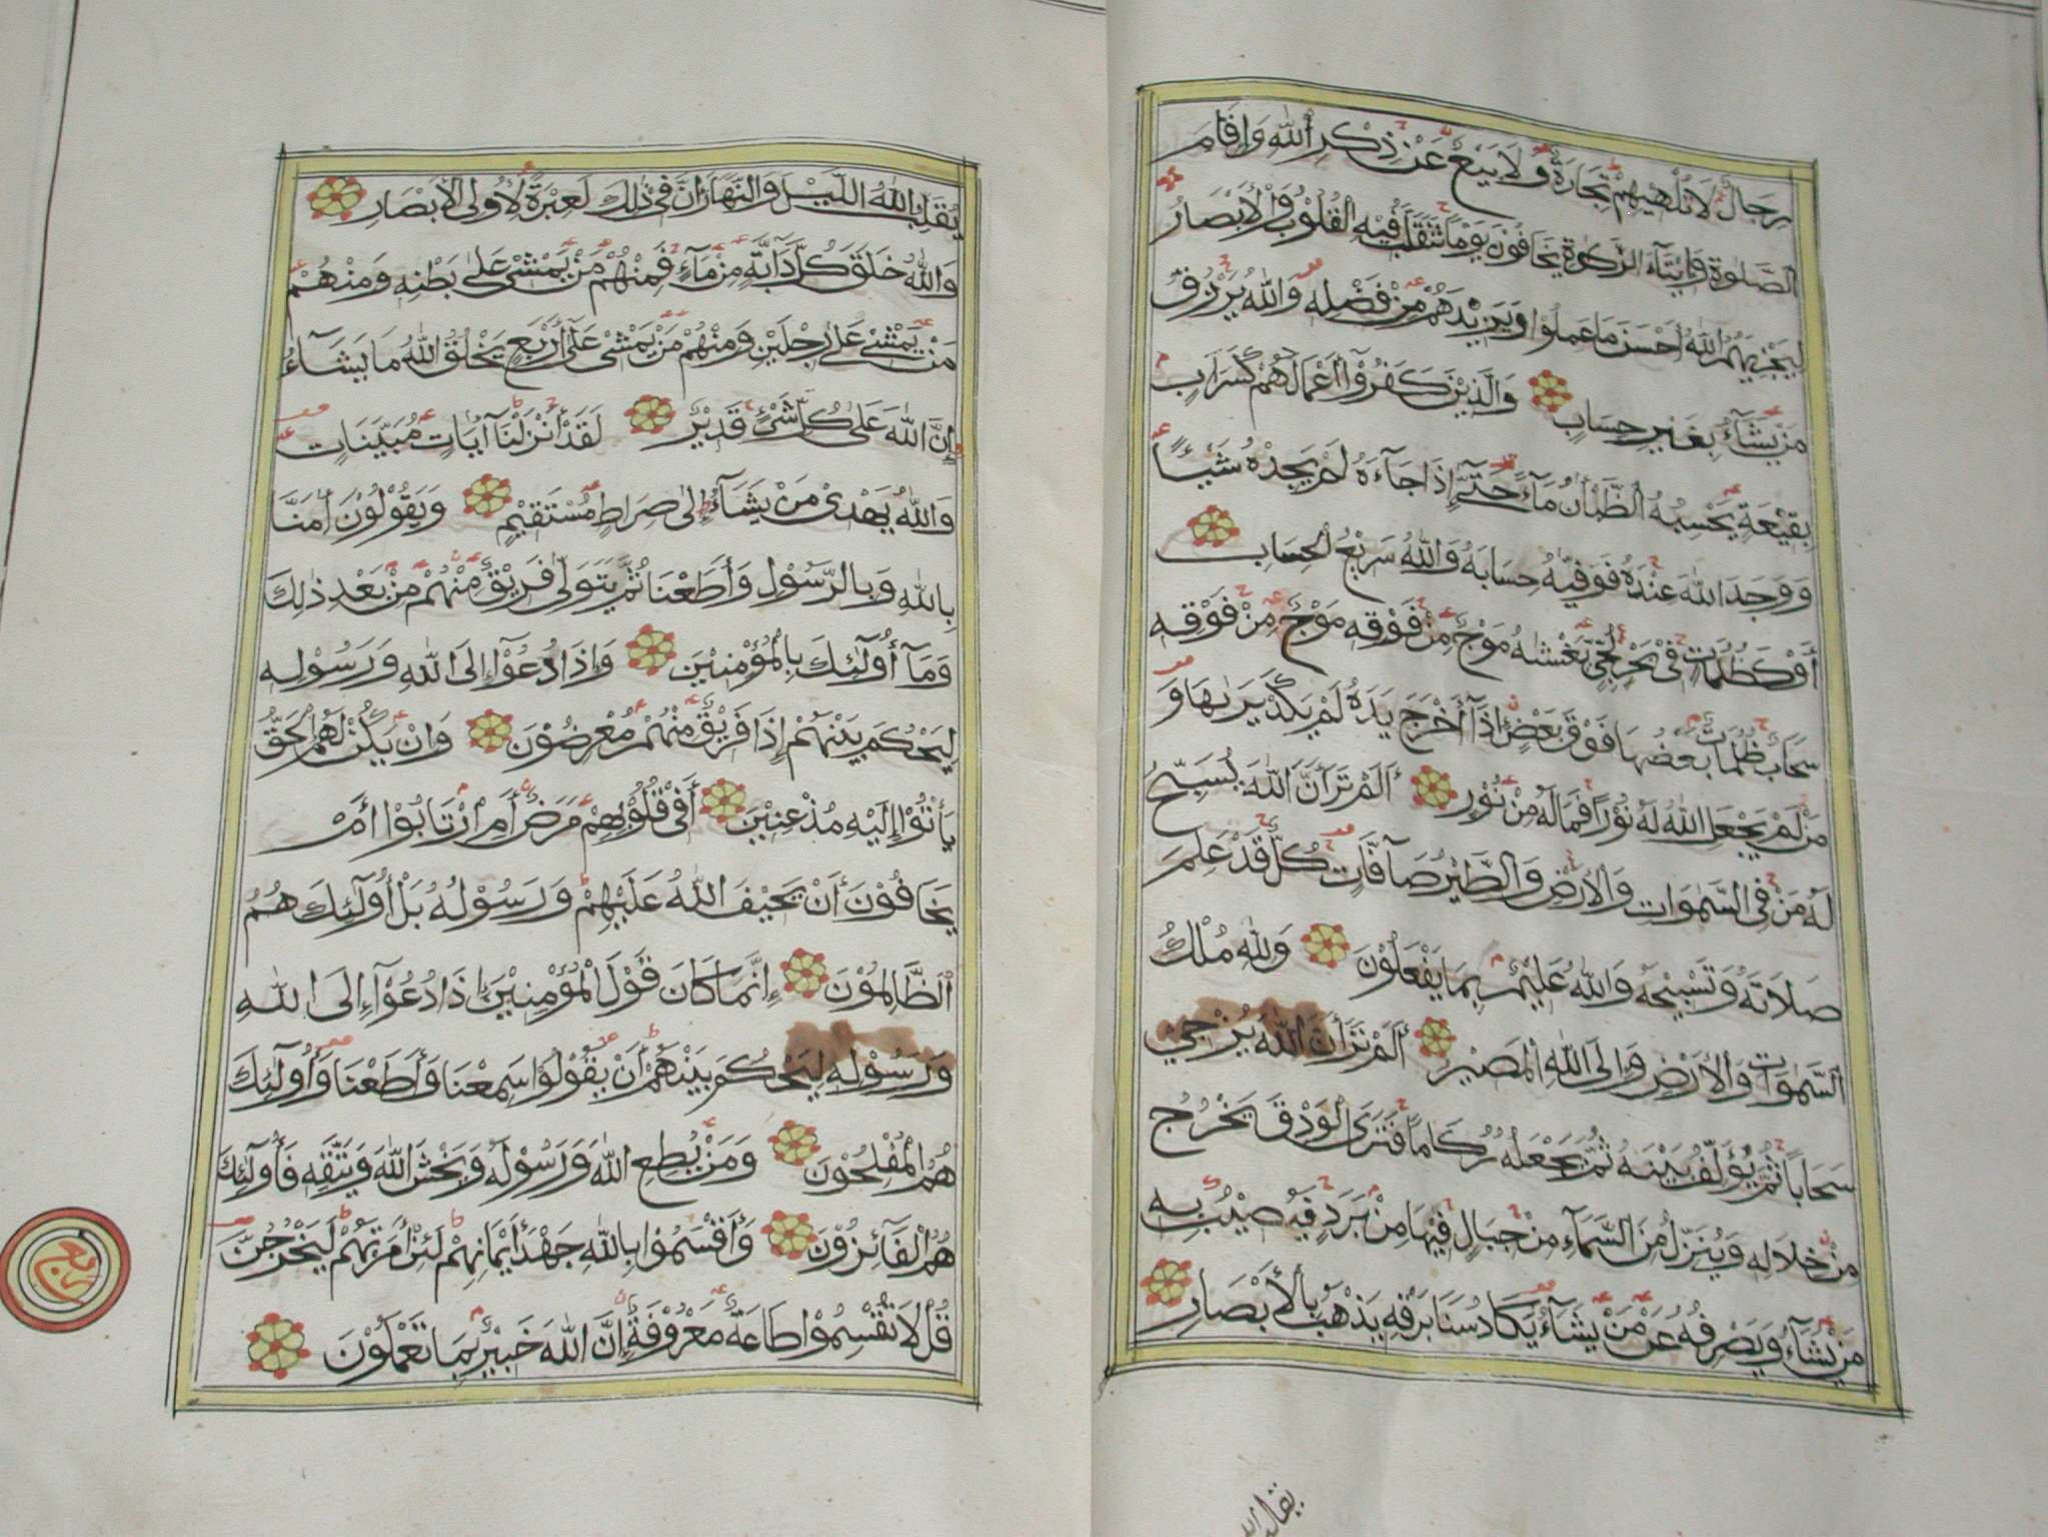 رِجَالٌ لَا تُلْهِيهِمْ تِجَارَةٌ وَلَا بَيْعٌ عَنْ ذِكْرِ اللّٰهِ وَإِقَامِ
الصَّلٰوةِ وَإِيتَآءِ الزَّكٰوةِ يَخَافُوْنَ يَوْمًا تَتَقَلَّبُ فِيْهِ الْقُلُوْبُ وَالْأَبْصَارُ
لِيَجْزِيَهُمُ اللّٰهُ أَحْسَنَ مَا عَمِلُوْا وَيَزِيْدَهُمْ مِنْ فَضْلِهِ وَاللّٰهُ يَرْزُقُ
مَنْ يَشَآءُ بِغَيْرِ حِسَابٍ وَالَّذِيْنَ كَفَرُوْآ أَعْمَالُهُمْ كَسَرَابٍ
بِقِيْعَةٍ يَحْسَبُهُ الظَّمْأٰنُ مَآءً حَتّٰٓى إِذَا جَآءَهُ لَمْ يَجِدْهُ شَيْئًا
وَوَجَدَ اللّٰهَ عِنْدَهُ فَوَفّٰيهُ حِسَابَهُ وَاللّٰهُ سَرِيْعُ الْحِسَابِ
أَوْ كَظُلُمَاتٍ فِيْ بَحْرٍ لُجِّيٍّ يَغْشٰىهُ مَوْجٌ مِنْ فَوْقِهِ مَوْجٌ مِنْ فَوْقِهِ
سَحَابٌ ظُلُمَاتٌ بَعْضُهَا فَوْقَ بَعْضٍ إِذَآ أَخْرَجَ يَدَهُ لَمْ يَكَدْ يَرٰىهَا وَ
مَنْ لَمْ يَجْعَلِ اللّٰهُ لَهُ نُوْرًا فَمَا لَهُ مِنْ نُوْرٍ أَلَمْ تَرَ أَنَّ اللّٰهَ يُسَبِّحُ
لَهُ مَنْ فِى السَّمٰوَاتِ وَالْأَرْضِ وَالطَّيْرُ صَآفَّاتٍ كُلٌّ قَدْ عَلِمَ
صَلَاتَهُ وَتَسْبِيْحَهُ وَاللّٰهُ عَلِيْمٌ بِمَا يَفْعَلُوْنَ وَلِلّٰهِ مُلْكُ
السَّمٰوَاتِ وَالْأَرْضِ وَإِلَى اللّٰهِ الْمَصِيْرُ أَلَمْ تَرَ أَنَّ اللّٰهَ يُزْجِيْ
سَحَابًا ثُمَّ يُؤَلِّفُ بَيْنَهُ ثُمَّ يَجْعَلُهُ رُكَامًا فَتَرَى الْوَدْقَ يَخْرُجُ
مِنْ خِلَالِهِ وَيُنَزِّلُ مِنَ السَّمَآءِ مِنْ جِبَالٍ فِيْهَا مِنْ بَرَدٍ فَيُصِيْبُ بِهِ
مَنْ يَشَآءُ وَيَصْرِفُهُ عَنْ مَنْ يَشَآءُ يَكَادُ سَنَا بَرْقِهِ يَذْهَبُ بِالْأَبْصَارِ
يقلب الله
يُقَلِّبُ اللّٰهُ اللَّيْلَ وَالنَّهَارَ إِنَّ فِيْ ذٰلِكَ لَعِبْرَةً لِأُولِى الْأَبْصَارِ
وَاللّٰهُ خَلَقَ كُلَّ دَآبَّةٍ مِنْ مَآءٍ فَمِنْهُمْ مَنْ يَمْشِيْ عَلٰى بَطْنِهِ وَمِنْهُمْ
مَنْ يَمْشِيْ عَلٰى رِجْلَيْنِ وَمِنْهُمْ مَنْ يَمْشِيْ عَلٰٓى أَرْبَعٍ يَخْلُقُ اللّٰهُ مَا يَشَآءُ
إِنَّ اللّٰهَ عَلٰى كُلِّ شَيْءٍ قَدِيْرٌ لَقَدْ أَنْزَلْنَآ اٰيَاتٍ مُبَيِّنَاتٍ
وَاللّٰهُ يَهْدِيْ مَنْ يَشَآءُ إِلٰى صِرَاطٍ مُسْتَقِيْمٍ وَيَقُوْلُوْنَ اٰمَنَّا
بِاللّٰهِ وَبِالرَّسُوْلِ وَأَطَعْنَا ثُمَّ يَتَوَلّٰى فَرِيْقٌ مِنْهُمْ مِنْ بَعْدِ ذٰلِكَ
وَمَآ أُولٰٓئِكَ بِالْمُؤْمِنِيْنَ وَإِذَا دُعُوْٓا إِلَى اللّٰهِ وَرَسُوْلِهِ
لِيَحْكُمَ بَيْنَهُمْ إِذَا فَرِيْقٌ مِنْهُمْ مُعْرِضُوْنَ وَإِنْ يَكُنْ لَهُمُ الْحَقُّ
يَأْتُوْٓا إِلَيْهِ مُذْعِنِيْنَ أَفِيْ قُلُوْبِهِمْ مَرَضٌ أَمِ ارْتَابُوْٓا أَمْ
يَخَافُوْنَ أَنْ يَحِيْفَ اللّٰهُ عَلَيْهِمْ وَرَسُوْلُهُ بَلْ أُولٰٓئِكَ هُمُ
الظَّالِمُوْنَ إِنَّمَا كَانَ قَوْلَ الْمُؤْمِنِيْنَ إِذَا دُعُوْٓا إِلَى اللّٰهِ
وَرَسُوْلِهِ لِيَحْكُمَ بَيْنَهُمْ أَنْ يَقُوْلُوْا سَمِعْنَا وَأَطَعْنَا وَأُولٰٓئِكَ
هُمُ الْمُفْلِحُوْنَ وَمَنْ يُطِعِ اللّٰهَ وَرَسُوْلَهُ وَيَخْشَ اللّٰهَ وَيَتَّقْهِ فَأُولٰٓئِكَ
هُمُ الْفَآئِزُوْنَ وَأَقْسَمُوْا بِاللّٰهِ جَهْدَ أَيْمَانِهِمْ لَئِنْ أَمَرْتَهُمْ لَيَخْرُجُنَّ
قُلْ لَا تُقْسِمُوْا طَاعَةٌ مَعْرُوْفَةٌ إِنَّ اللّٰهَ خَبِيْرٌ بِمَا تَعْمَلُوْنَ